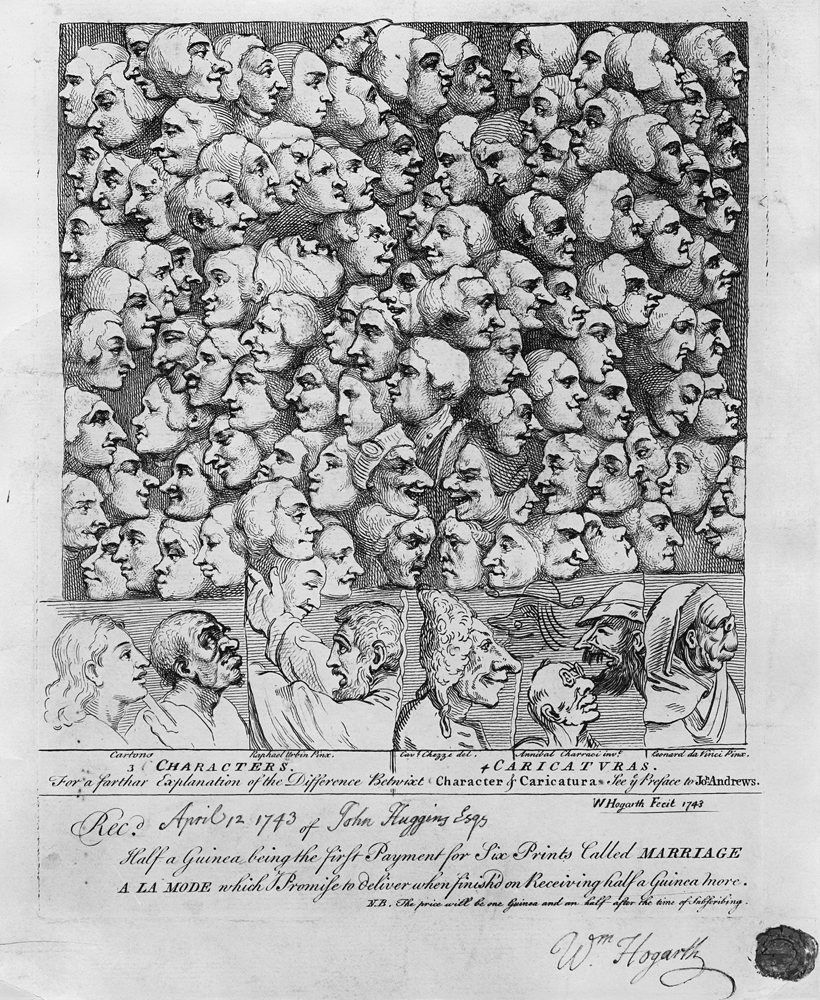 Cartons Raphael Urbin Pinx. Cav.r Chezze del. Annibal Charraci inv.t Leonard da Vinci Pinx.
3 CHARACTERS. 4 CARICATURAS.
For a farthar Explanation of the Difference Betwixt Character & Caricatura See ye Preface to Jo.s Andrews.
W Hogarth Fecit 1743
Rec.d April 12 1743 of John Huggins Esqr
Half a Guinea being the first Payment for Six Prints Called MARRIAGE
A LA MODE which I Promise to deliver when finish'd on Receiving half a Guinea more.
N.B. The price will be one Guinea and an half after the time of Subscribing.
Wm Hogarth